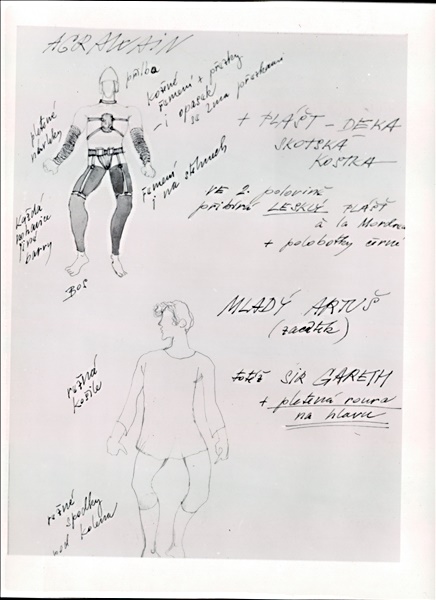 AGRAWAIN
přilba
Kožené
řemení + přezky
– i opasek
se 2ma přezkami
Pletené
návleky
+ PLÁŠŤ – DEKA
SKOTSKÁ
KOSTKA
řemení
i na stehnech
VE 2. polovině
přibírá LESKLÝ PLÁŠŤ
à la Mordred
+ polobotky černé
Každá
nohavice
jiné
barvy
BOS
MLADÝ ARTUŠ
(začátek)
režná
košile
totéž SIR GARETH
+ pletená roura
na hlavu
režné
spodky
nad kolena